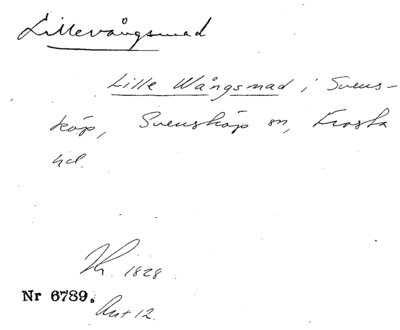 Lillevångsmad
Lille Wångsmad i Svens-
köp, Svensköp sn, Frosta
hd.
1828.
Nr 6789.
Akt 12.